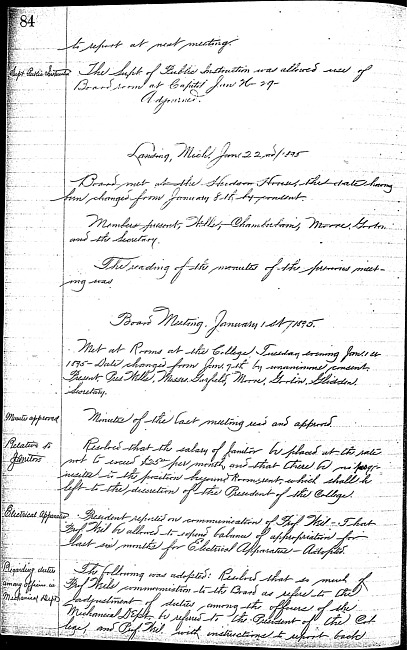 84
to report at next meeting.
Supt Public Instruction
The Supt of Public Instruction was allowed use of
Board room at Capitol Jan 26-29-
Adjourned.
Lansing, Mich. Jan 22nd/1895
Board met at the Hudson House, the date having
been changed from January 8th by consent.
Members present, Wells, Chamberlain, Moore, Gorton
and the Secretary.
The reading of the minutes of the previous meet-
ing was
Board Meeting. January 1st/1895.
Met at Rooms at the College Tuesday evening Jan. 1st
1895 - Date changed from Jan. 7th by unanimous consent.
Present Pres Wells, Messrs Garfield, Moore, Gorton, Glidden
Secretary.
Minutes approved
Minutes of the last meeting read and approved.
Relation to
Janitor
Resolved that the salary of Janitor be placed at the rate
not to exceed $25 per month, and that there be no
in the position beyond Room rent, which shall be
left to the discretion of the President of the College.
Electrical Apparatus
President reported on communication of Prof Weil - That
Prof Weil be allowed to expend balance of appropriation for
last six months for Electrical Apparatus - Adopted.
Regarding duties
among officers in
Mechanical Dept
The following was adopted: Resolved that so much of
Prof Weil's communication to the Board as refers to the
adjustment of duties among the officers of the
Mechanical Dept. be referred to the President of the Col
lege, and Prof Weil, with instructions to report back